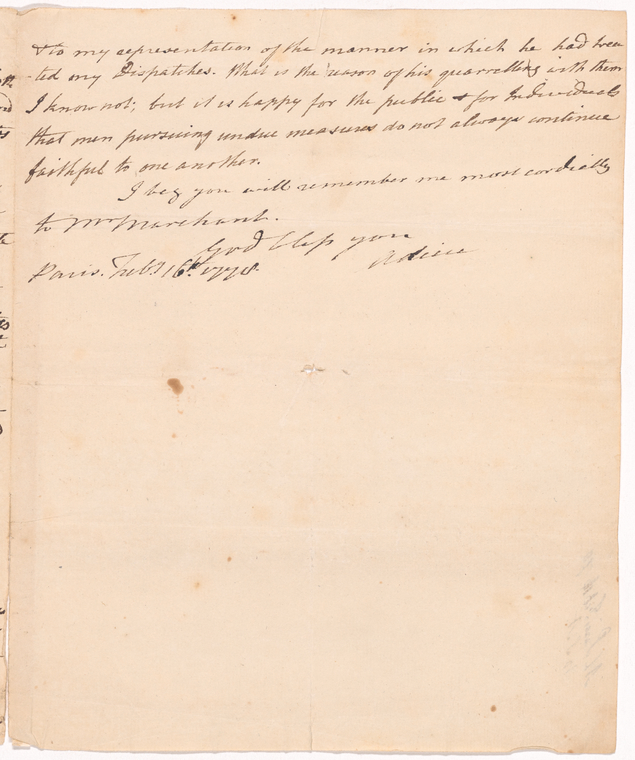 & to my representation of the manner in which he had trea
-ted my Dispatches. What is the reason of his quarrelling with them
I know not; but it is happy for the public & for Individuals
that men pursuing undue measures do not always continue
faithful to one another.
I beg you will remember me most cordially
to Mr Marchant.
God bless you
Adieu
Paris. Feby 16th. 1778.